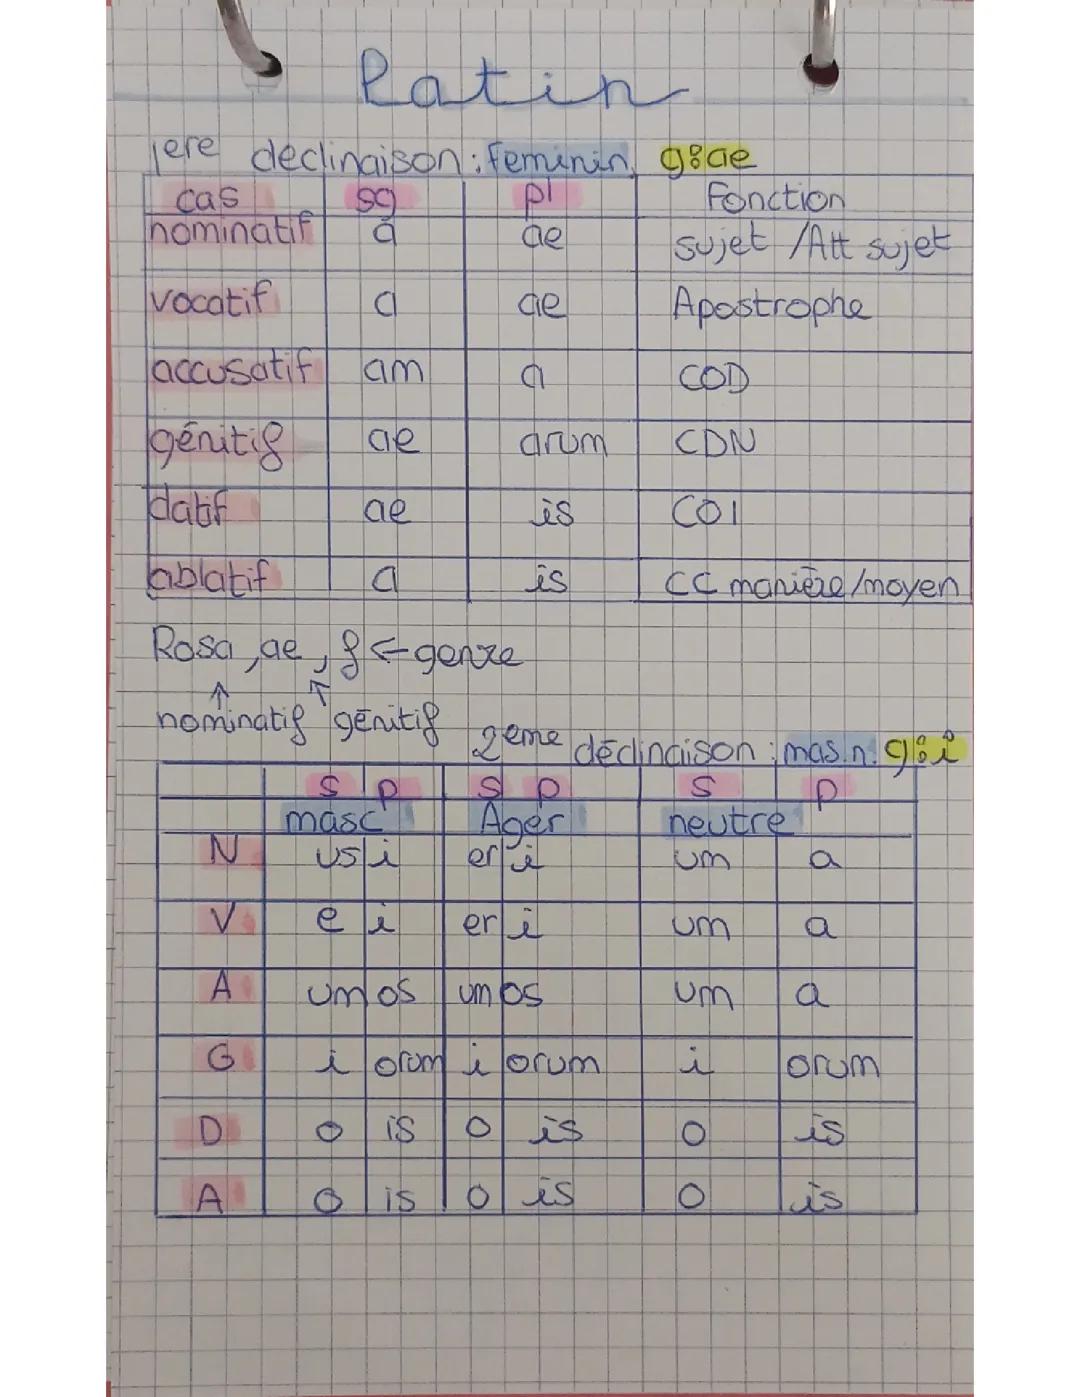 Latin
1ere déclinaison : feminin. g : ae
cas sg pl Fonction
nominatif a ae sujet / Att sujet
vocatif a ae Apostrophe
accusatif am a COD
génitif ae arum CDN
datif ae is COI
ablatif a is CC manière/moyen
Rosa, ae, f ← genre
↑ ↑
nominatif génitif
2eme déclinaison : mas.n. g : i
s p s p s p
masc Ager neutre
N us i er i um a
V e i er i um a
A um os um os um a
G i orum i orum i orum
D o is o is o is
A o is o is o is